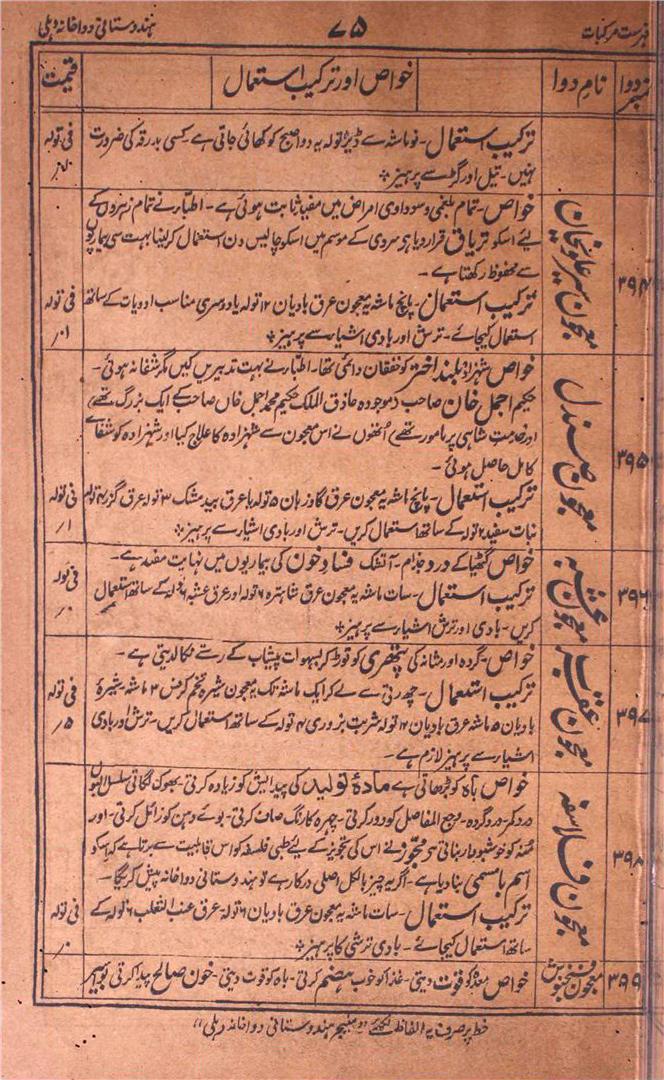 فہرست مرکبات ۷۵ ہندوستانی دواخانہ دہلی
نمبر دوا نام دوا خواص اور ترکیب استعمال قیمت
ترکیب استعمال۔ نو ماشہ سے ڈیڑھ تولہ یہ دوا صبح کو کھائی جاتی ہے۔ کسی بدرقہ کی ضرورت فی تولہ
نہیں۔ تیل اور گڑ سے پرہیز
۳۹۴ معجون سیر علویخان
خواص۔ تمام بلغمی و سوداوی امراض میں مفید ثابت ہوئی ہے۔ اطبار نے تمام زہروں کے
لئے اسکو تریاق قرار دیا ہو سردی کے موسم میں اسکو چالیس دن استعمال کرلینا بہت سی بیماریوں
سے محفوظ رکھتا ہے۔
ترکیب استعمال۔ پانچ ماشہ یہ معجون عرق بادیان ۱۲ تولہ یا دوسری مناسب ادویات کے ساتھ فی تولہ
استعمال کیجائے۔ ترش اور بادی اشیار سے پرہیز ۱۰ر
۳۹۵ معجون صندل
خواص شہزادہ بلند اختر کو خفقان دائمی تھا۔ اطبار نے بہت تدبیریں کیں مگر شفا نہ ہوئی۔
حکیم اجمل خان صاحب (موجودہ حاذق الملک حکیم محمد اجمل خاں صاحب کے ایک بزرگ تھے)
اور خدمت شاہی پر مامور تھے) اُنھوں نے اس معجون سے شہزادہ کا علاج کیا اور شہزادہ کو شفائے
کامل حاصل ہوئی۔
ترکیب استعمال۔ پانچ ماشہ یہ معجون عرق گاوزبان ۵ تولہ یا عرق بید مشک ۳ تولہ عرق گزر ۴ تولہ فی تولہ
نبات سفید ۲ تولہ کے ساتھ استعمال کریں۔ ترش اور بادی اشیار سے پرہیز ۱ر
۳۹۶ معجون عشبہ
خواص گٹھیا کے درد جذام۔ آتشک فساد خون کی بیماریوں میں نہایت مفید ہے۔
ترکیب استعمال۔ سات ماشہ یہ معجون عرق شاہترہ ۶ تولہ اور عرق عشبہ ۶ تولہ کے ساتھ استعمال فی تولہ
کریں۔ بادی اور ترش اشیار سے پرہیز
۳۹۷ معجون عقرب
خواص۔ گردہ اور مثانہ کی پتھری کو توڑ کر بسہولت پیشاب کے رستے نکالدیتی ہے۔
ترکیب استعمال۔ چھ رتی سے لے کر ایک ماشہ تک یہ معجون شیرہ تخم کرفس ۳ ماشہ۔ شیرۂ فی تولہ
بادیان ۵ ماشہ عرق بادیان ۱۲ تولہ شربت بزوری ۴ تولہ کے ساتھ استعمال کریں۔ ترش اور بادی ۵ر
اشیار سے پرہیز لازم ہے۔
۳۹۸ معجون فلاسفہ
خواص باہ کو بڑھاتی ہے مادۂ تولید کی پیدایش کو زیادہ کرتی۔ بھوک لگاتی سلسل البول
درد کمر۔ درد گردہ۔ وجع المفاصل کو دور کرتی۔ چہرہ کا رنگ صاف کرتی۔ بوے دہن کو زائل کرتی۔ اور
منہ کو خوشبودار بناتی ہے مجوّز نے اس کی تجویز کے لیے طبی فلسفہ کو اس قابلیت سے برتا ہے کہ اسکو
اسم بامسمی بنا دیا ہے۔ اگر یہ چیز بالکل اصلی درکار ہے تو ہندوستانی دواخانہ پیش کریگا۔
ترکیب استعمال۔ سات ماشہ یہ معجون عرق بادیان ۶ تولہ عرق عنب الثعلب ۶ تولہ کے فی تولہ
ساتھ استعمال کیجائے۔ بادی ترشی کا پرہیز
۳۹۹ معجون فنجنوش خواص معدہ کو قوت دیتی۔ غذا کو خوب ہضم کرتی۔ باہ کو قوت دیتی۔ خون صالح پیدا کرتی
خط پر صرف یہ الفاظ لکھئے "منیجر ہندوستانی دواخانہ دہلی"